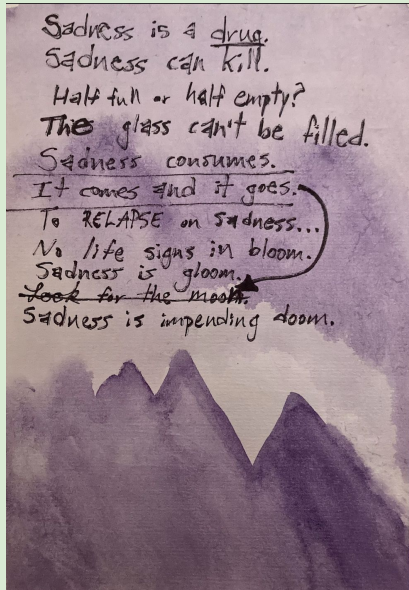 Sadness is a drug.
Sadness can kill.
Half full or half empty?
The glass can't be filled.
Sadness consumes.
It comes and it goes.
To RELAPSE on sadness...
No life signs in bloom.
Sadness is gloom.
Look for the moon.
Sadness is impending doom.